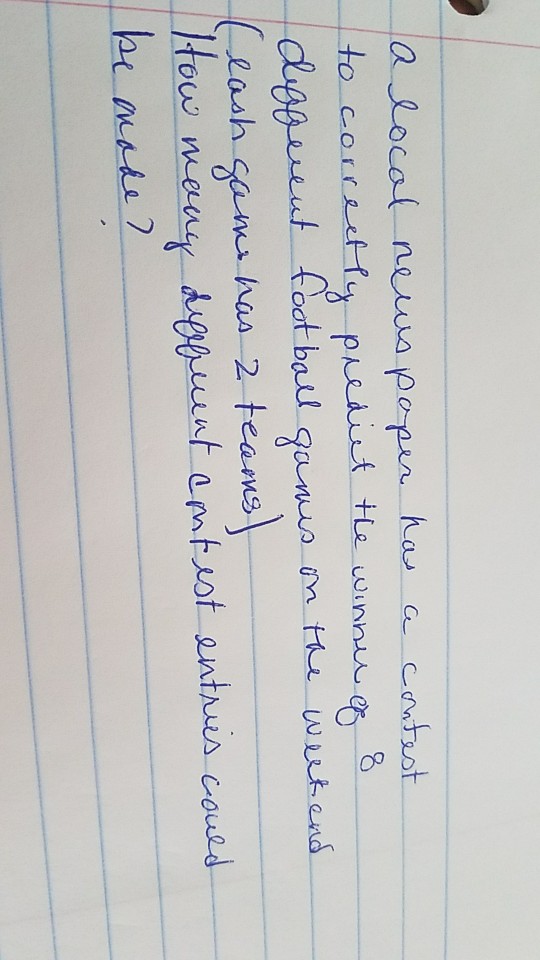 a local newspaper has a contest
to correctly predict the winner of 8
different football games on the weekend
(each game has 2 teams)
How many different contest entries could
be made?